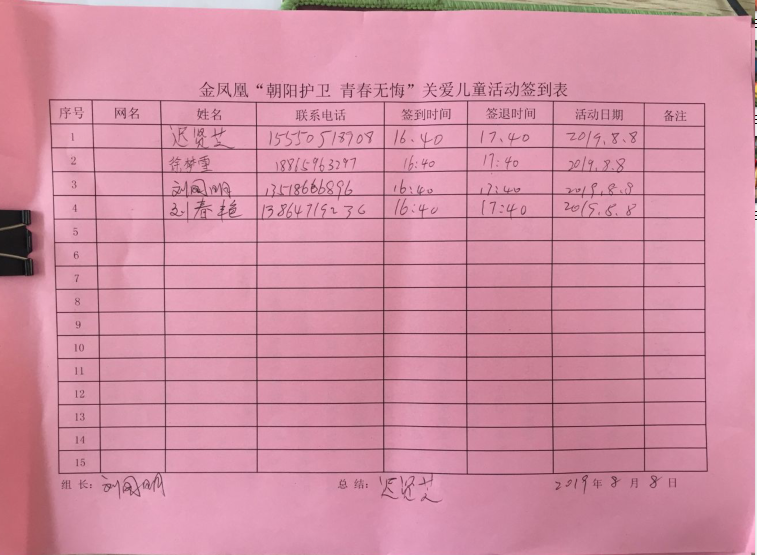 金凤凰“朝阳护卫 青春无悔”关爱儿童活动签到表
序号 网名 姓名 联系电话 签到时间 签退时间 活动日期 备注
1 迟贤芝 15550513908 16.40 17.40 2019.8.8
2 徐梦雪 18865963297 16:40 17:40 2019.8.8
3 刘国明 13518666896 16:40 17:40 2019.8.8
4 刘春艳 13864719236 16:40 17:40 2019.8.8
5
6
7
8
9
10
11
12
13
14
15
组 长: 刘国明 总 结: 迟贤芝 2019 年 8 月 8 日